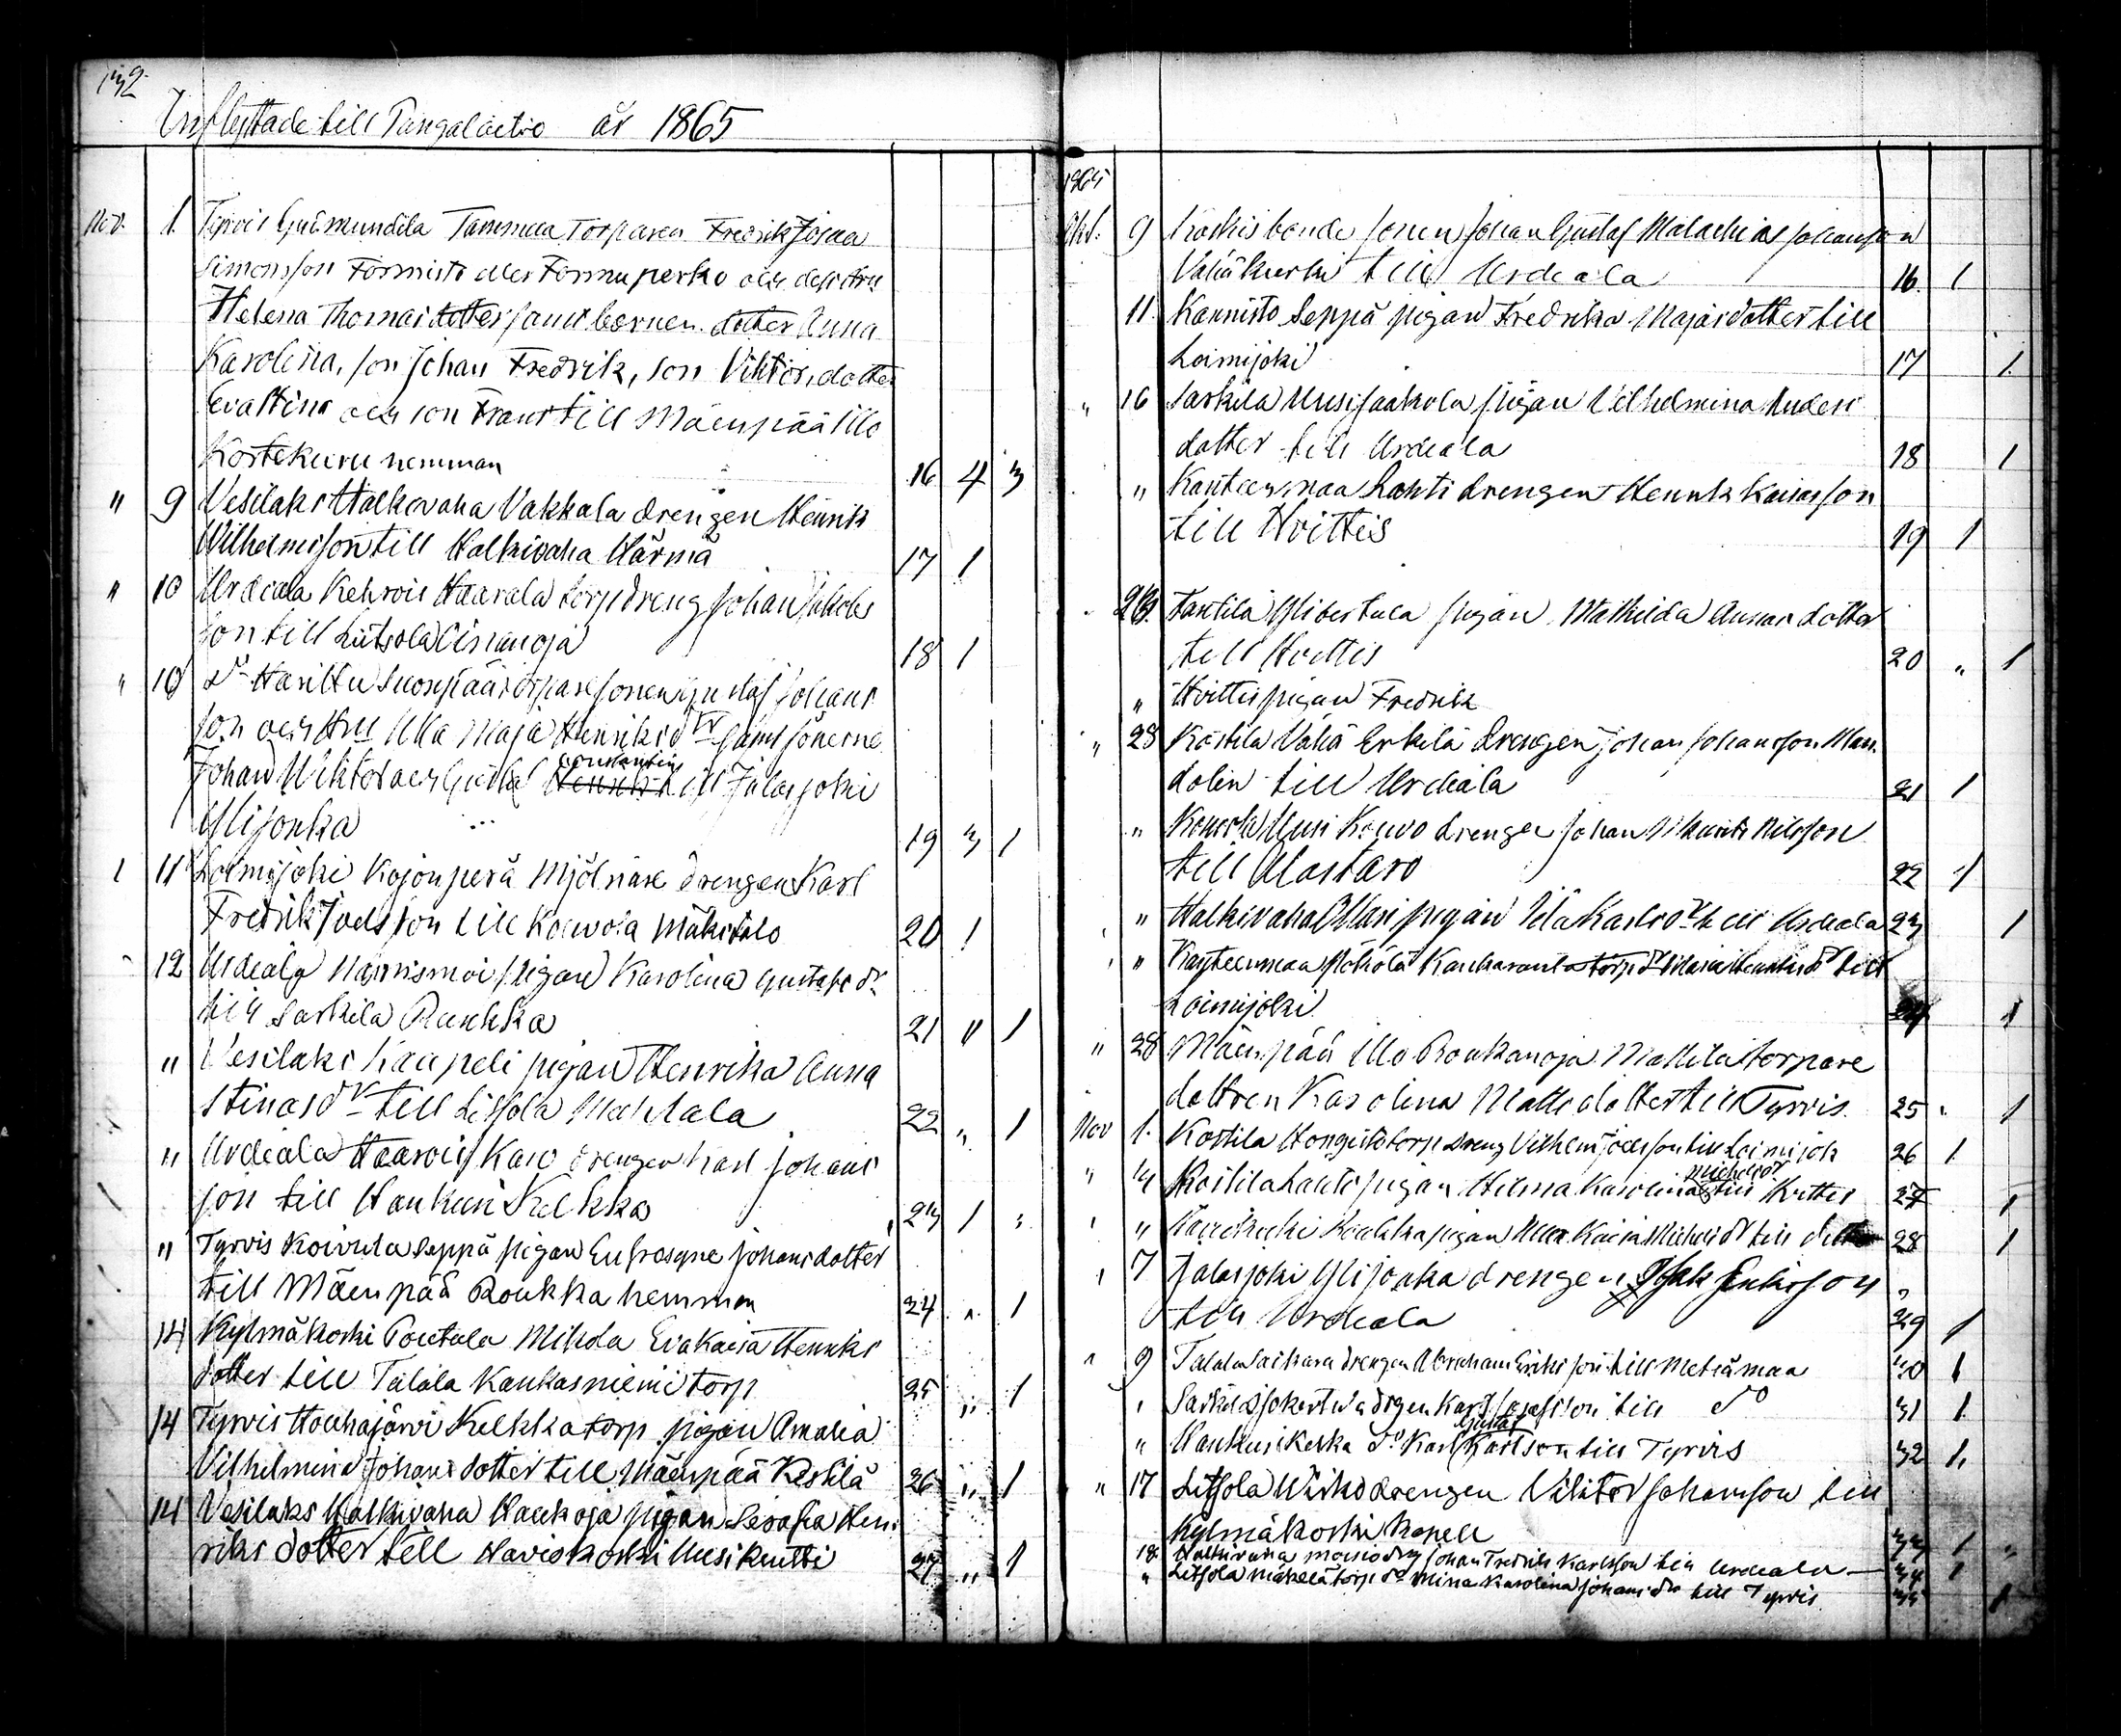 132
Inflyttade till Pungalaitio år 1865
Nov. 1. Tyrvis Tammaa Torparen Fredrik Josua
Simonsson Formisto eller Formuperko och dess hru
Helena Thomasdotter samt barnen dotter Anna
Karolina, son Johan Fredrik, son Viktor, dotter
Eva Stina och son Frans till Mäenpää Illo
Kostekuru hemman 16 4 3
" 9 Vesilaks Halkivaha Vakkala drengen Henrik
Wilhelmsson till Halkivaha Härmä 17 1
" 10 Urdeala Kehrois Haavala torp dreng Johan Jakobs
son till Liitsola Ojanoja 18 1
" 10 Do Hanittu Suonpää torpare sonen Gustaf Johans
son och Hru Ulla Maja Henriksdr samt sönerne
Johan Wiktor och Gustaf Henrik Constantin till Jalasjoki
Ylijonka 19 3 1
" 11 Loimijoki Kojonperä Mjölnare drengen Karl
Fredrik Joelsson till Kouvola Mäkitalo 20 1
12 Urdeala Nännismoi pigan Karolina Gustafsdr
till Sarkila Raukka 21 " 1
" Vesilaks Kaupeli pigan Henrika Anna
Stinasdr till Litsola Mahlala 22 " 1
" Urdeala Haarois Karo drengen Karl Johans
son till Haukuri Kelkka 23 1 "
" Tyrvis Koivula Seppä pigan Eufrosyne Johansdotter
till Mäenpää Roukka hemman 24 " 1
14 Kylmäkoski Pontula Mikola Eva Kaisa Henriks
dotter till Talala Kankasniemi torp 25 " 1
14 Tyrvis Houhajärvi Kelkka torp pigan Amalia
Vilhelmina Johansdotter till Mäenpää Keskilä 26 " 1
14 Vesilaks Halkivaha Haukoja pigan Serafia Hen
riksdotter till Haviokoski Uusikuitti 27 " 1
1865
Okt. 9 Koskis bonde sonen Johan Gustaf Malachias Johansson
Vähäkurki till Urdeala 16 1
11 Kannisto Seppä pigan Fredrika Majasdotter till
Loimijoki 17 1
" 16 Sarkila Uusijaakola pigan Vilhelmina Anders
dotter till Urdeala 18 1
" Kanteenmaa Lahti drengen Henrik Kaisasson
till Hvittis 19 1
26. Tantila Ylipertula pigan Mathilda Annasdotter
till Hvittis 20 " 1
" Hvittis pigan Fredrik
" 28 Kostila Vähä Erkilä drengen Johan Johansson Man
dolin till Urdeala 21 1
" Kouvola Uusi Kouvo drengen Johan Maurits Nilsson
till Alastaro 22 1
" Halkivaha Ollari pigan Ulla Karlsdr till Urdeala 23 1
" Kanteenmaa Pöhölä Kankaranta torp dr Maria Henriksdr till
Loimijoki 24 1
" 28 Mäenpää Illo Roukanoja Mattila torpare
dottren Karolina Mattsdotter till Tyrvis 25 1
Nov 1. Kostila Hongisto torp dreng Vilhelm Joelsson till Loimijok 26 1
" 4 Kostila Lauto pigan Hilma Karolina Michelsdr till Hvittis 27 1
" Kaisa Michelsdr till 28 1
" 7 Jalasjoki Ylijonka drengen Isak Eriksson
till Urdeala 29 1
" 9 Talala Saikara drengen Abraham Eriksson till Metsämaa 30 1
" Sarkila Jokertula drgen Karl Josefsson till do 31 1
" Haukuri Kelkka do Karl Gustaf Karlsson till Tyrvis 32 1.
" 17 Litsola Wirho drengen Viktor Johansson till
Kylmäkoski kapell 33 1 "
18. Halkivaha moisio drg Johan Fredrik Karlsson till Urdeala — 34 1
" Litsola Mäkelä torp dr Mina Karolina Johansdr till Tyrvis 35 1